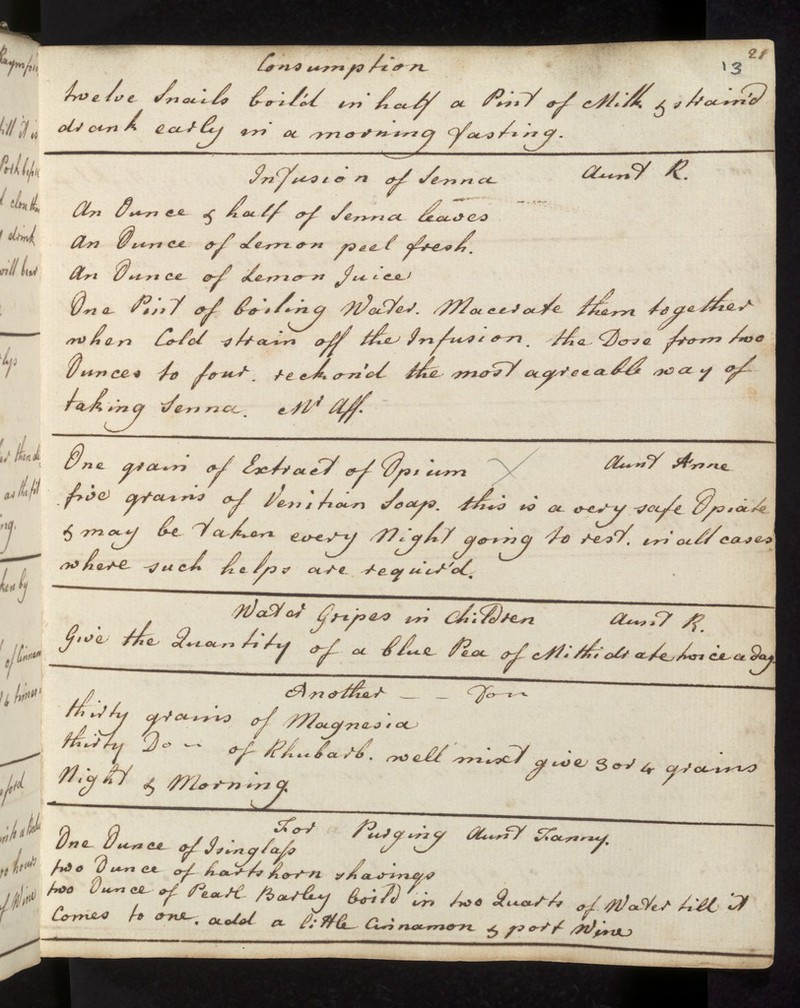 28
13
Consumption
twelve Snails boil'd in half a Pint of Milk & strain'd
drank early in a morning fasting.
Infusion of Senna Aunt R.
An Ounce & half of Senna leaves
An Ounce of Lemon peel fresh.
An Ounce of Lemon Juice
One Pint of boiling Water. Macerate them together
when Cold strain off the Infusion. the Dose from two
Ounces to four. reckon'd the most agreeable way of
taking Senna. Mr Aff.
One grain of Extract of Opium Aunt Anne
five grains of Venitian Soap. this is a very safe Opiate
& may be taken every Night going to rest. in all cases
where such helps are requir'd.
Water Gripes in Children Aunt R.
Give the Quantity of a blue Pea of Mithidrate twice a day
Another
thirty grains of Magnesia
thirty Do of Rhubarb. well mixt give 3 or 4 grains
Night & Morning.
For Purging Aunt Fanny.
One Ounce of Isinglass
two Ounce of hartshorn shavings
two Ounce of Pearl Barley boil'd in two Quarts of Water till it
Comes to one. add a little Cinnamon & port Wine